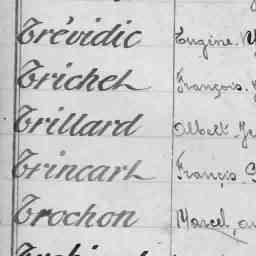 Trévidic Eugène
Trichet François
Trillard Albert
Trincart Francis
Trochon Marcel,